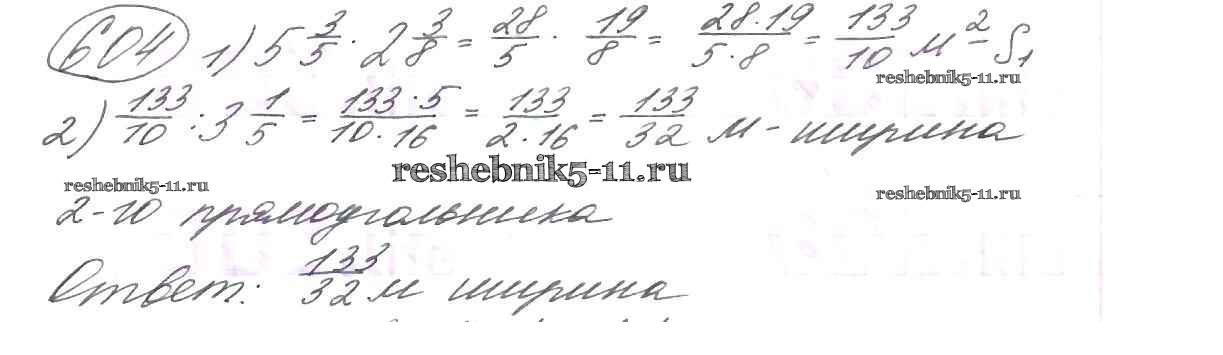 604 1) 5 3/5 · 2 3/8 = 28/5 · 19/8 = 28·19/5·8 = 133/10 м² – S₁
reshebnik5-11.ru
2) 133/10 : 3 1/5 = 133·5/10·16 = 133/2·16 = 133/32 м – ширина
reshebnik5-11.ru
reshebnik5-11.ru
reshebnik5-11.ru
2-го прямоугольника
Ответ: 133/32 м ширина